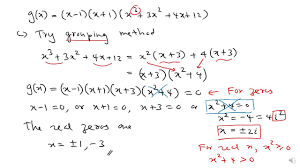 g(x) = (x-1)(x+1)(x³+3x²+4x+12)
↳ Try grouping method
x³+3x²+4x+12 = x²(x+3)+4(x+3)
= (x+3)(x²+4)
g(x) = (x-1)(x+1)(x+3)(x²+4) = 0 ← For zeros
x-1=0, or x+1=0, x+3=0 or x²+4=0
x² = -4 = 4i²
x = ±2i
The real zeros are
x = ±1, -3
For real x, x² ≥ 0
x²+4 > 0